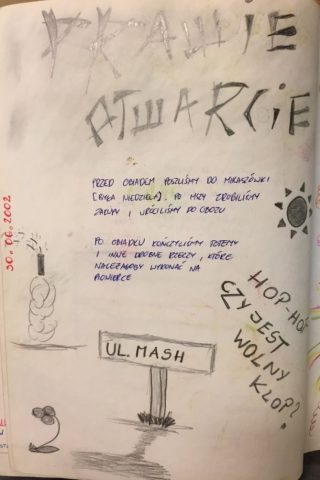 PRAWIE
OTWARCIE
PRZED OBIADEM POSZLIŚMY DO MIKASZÓWKI
(BYŁA NIEDZIELA). PO MSZY ZROBILIŚMY
ZAKUPY I WRÓCILIŚMY DO OBOZU
PO OBIADKU KOŃCZYLIŚMY TOTEMY
I INNE DROBNE RZECZY, KTÓRE
NALEŻAŁOBY WYKONAĆ NA
PIONIERCE
30.06.2002
HOP-HOP
CZY JEST
WOLNY
KLOP?
UL. MASH